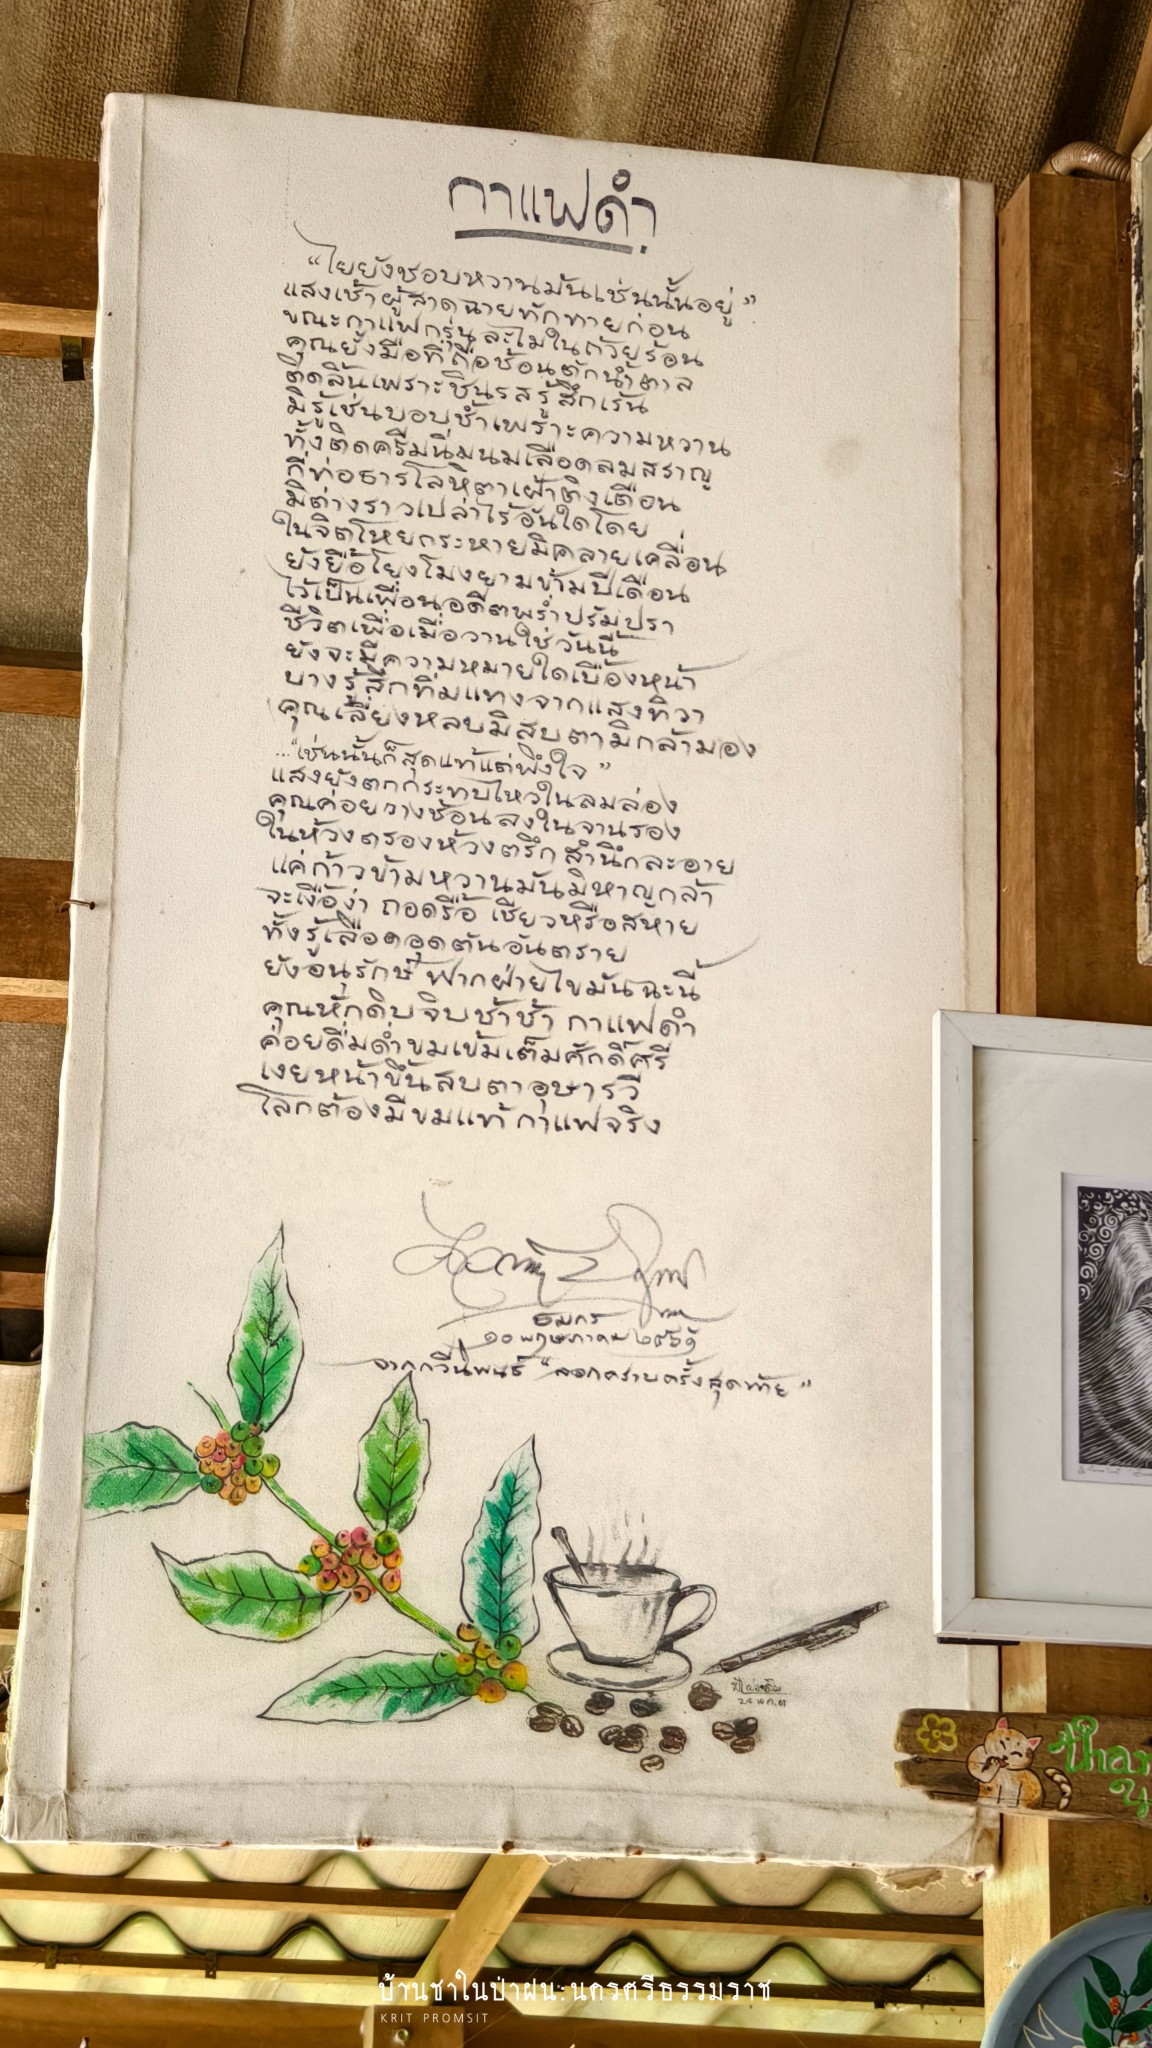 กาแฟดำ
“ไยยังชอบหวานมันเช่นนั้นอยู่”
แสงเช้าผู้สาดฉายทักทายก่อน
ขณะกาแฟกรุ่นละไมในถ้วยร้อน
คุณยั้งมือที่ถือช้อนตักน้ำตาล
ติดลิ้นเพราะชินรสรู้สึกเร้น
มิรู้เช่นบอบช้ำเพราะความหวาน
ทั้งติดครีมนิ่มนมเลือดลมสราญ
กี่ท่อธารโลหิตาเฝ้าติงเตือน
มิต่างราวเปล่าไร้อันใดโดย
ในจิตโหยกระหายมิคลายเคลื่อน
ยังยื้อโยงโมงยามข้ามปีเดือน
ไว้เป็นเพื่อนอดีตพร่ำปรัมปรา
ชีวิตเพื่อเมื่อวานใช่วันนี้
ยังจะมีความหมายใดเบื้องหน้า
บางรู้สึกทิ่มแทงจากแสงทิวา
คุณเลี่ยงหลบมิสบตามิกล้ามอง
..."เช่นนั้นก็สุดแท้แต่พึงใจ"
แสงยังตกกระทบไหวในลมล่อง
คุณค่อยวางช้อนลงในจานรอง
ในห้วงตรองห้วงตรึกสำนึกละอาย
แค่ก้าวข้ามหวานมันมิหาญกล้า
จะเงื้อง่า ถอดรื้อ เชียวหรือสหาย
ทั้งรู้เลือดอุดตันอันตราย
ยังอนุรักษ์ฟากฝ่ายไขมันฉะนี้
คุณหักดิบจิบช้าช้า กาแฟดำ
ค่อยดื่มด่ำขมเข้มเต็มศักดิ์ศรี
เงยหน้าขึ้นสบตาอุษารวี
โลกต้องมีขมแท้กาแฟจริง
ธมกร
๑๐ พฤษภาคม ๒๕๖๑
จากกวีนิพนธ์ "ลอกคราบครั้งสุดท้าย"
24 พ.ค. 61
บ้านชาในป่าฝน:นครศรีธรรมราช
KRIT PROMSIT